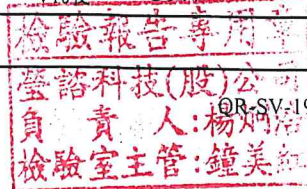 檢驗報告專用章
瑩諮科技(股)公司
QR-SV-19
負責人:楊
檢驗室主管:鐘美